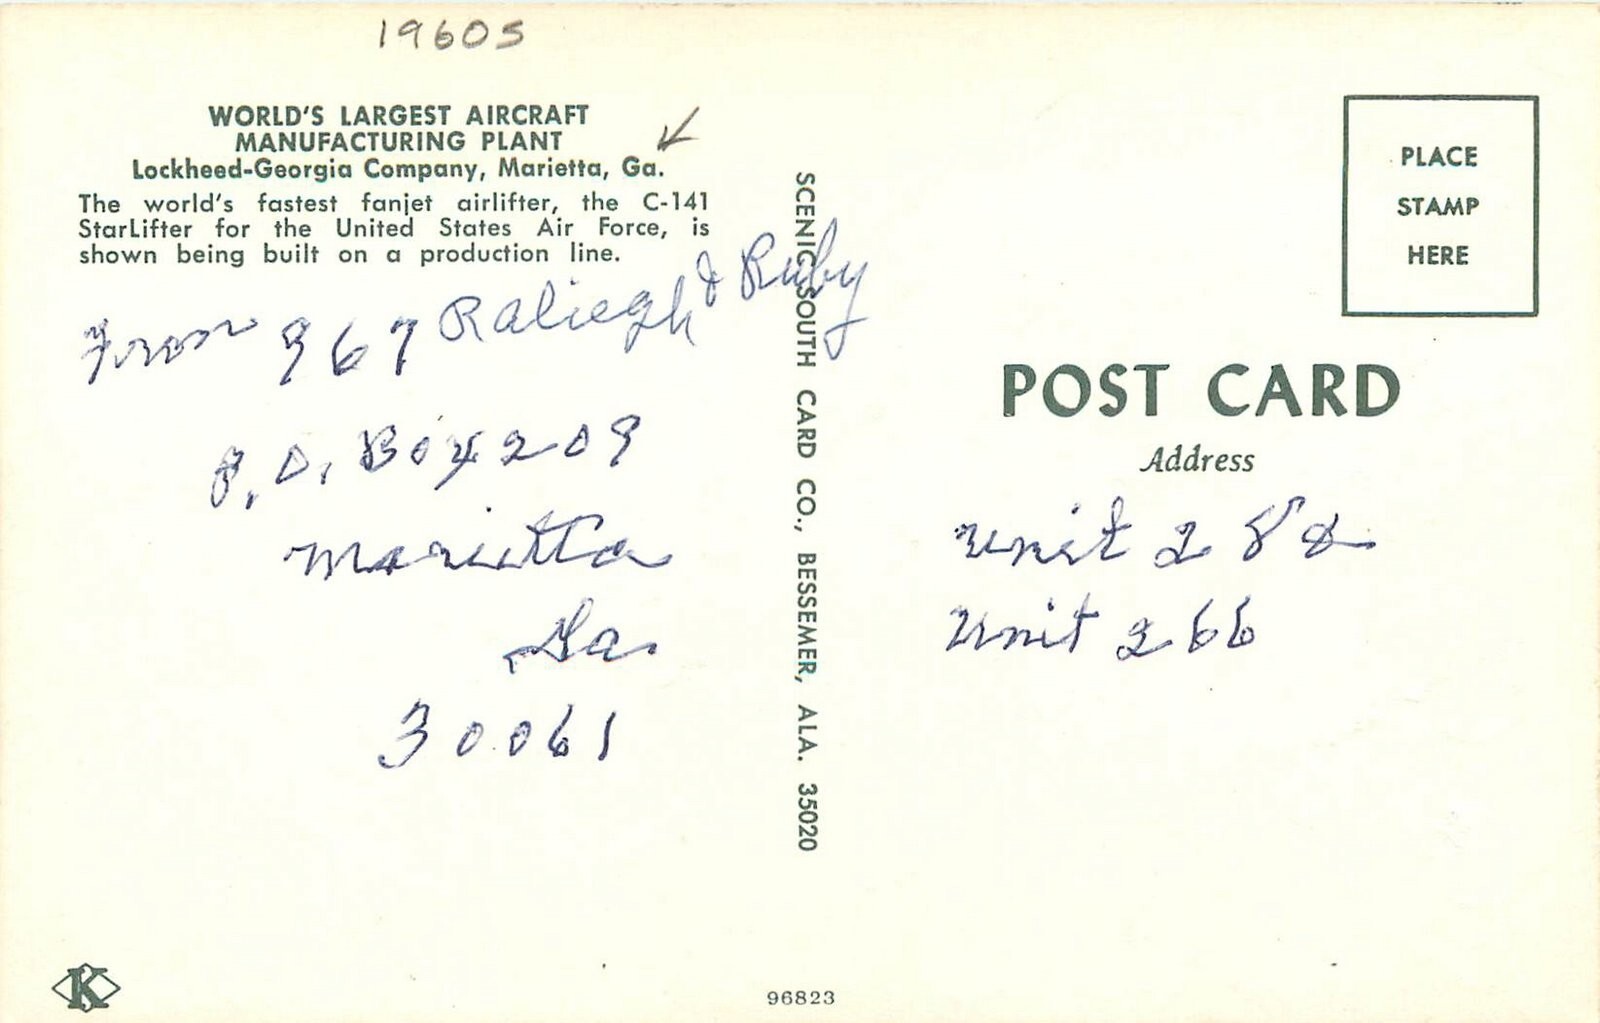 1960s
WORLD'S LARGEST AIRCRAFT
MANUFACTURING PLANT
Lockheed-Georgia Company, Marietta, Ga.
The world's fastest fanjet airlifter, the C-141
StarLifter for the United States Air Force, is
shown being built on a production line.
From 967 Raliegh & Ruby
P.O. Box 209
Marietta
Ga.
30061
SCENIC SOUTH CARD CO., BESSEMER, ALA. 35020
PLACE
STAMP
HERE
POST CARD
Address
Unit 282
Unit 266
K
96823